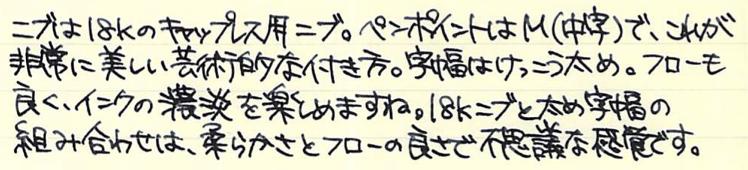 ニブは18kのキャップレス用ニブ。ペンポイントはM(中字)で、これが
非常に美しい芸術的な付き方。字幅はけっこう太め。フローも
良く、インクの濃淡を楽しめますね。18kニブと太め字幅の
組み合わせは、柔らかさとフローの良さで不思議な感覚です。